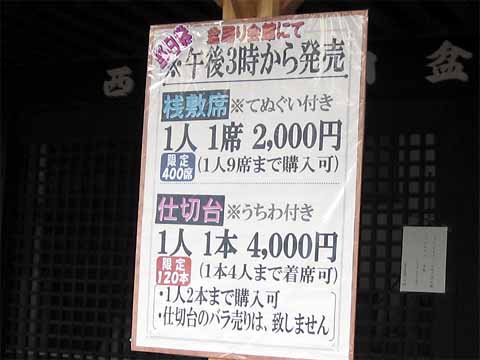 盆踊り会館にて
※午後3時から発売
桟敷席※てぬぐい付き
1人 1席 2,000円
限定
400席
(1人9席まで購入可)
仕切台※うちわ付き
1人 1本 4,000円
限定
120本
(1本4人まで着席可)
・1人2本まで購入可
・仕切台のバラ売りは、致しません
西
盆